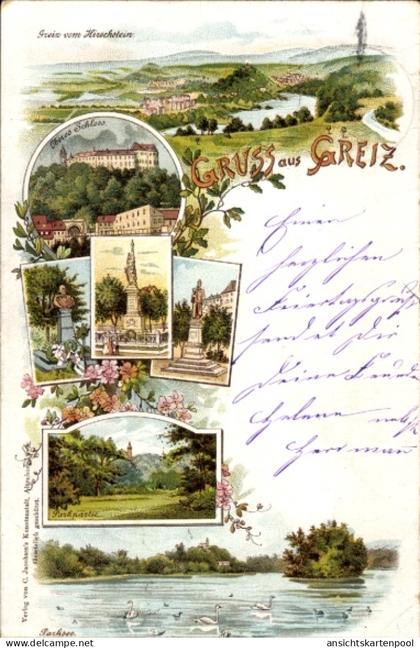 Greiz vom Hirschstein.
Oberes Schloss.
GRUSS aus GREIZ.
Einen
herzlichen
Feiertagsgruß
sendet Dir
Deine Freundin
Helene nebst
Herrmann
Parkpartie
Parksee.
Verlag von C. Jacobsen's Kunstanstalt,
Gesetzlich geschützt.
ansichtskartenpool